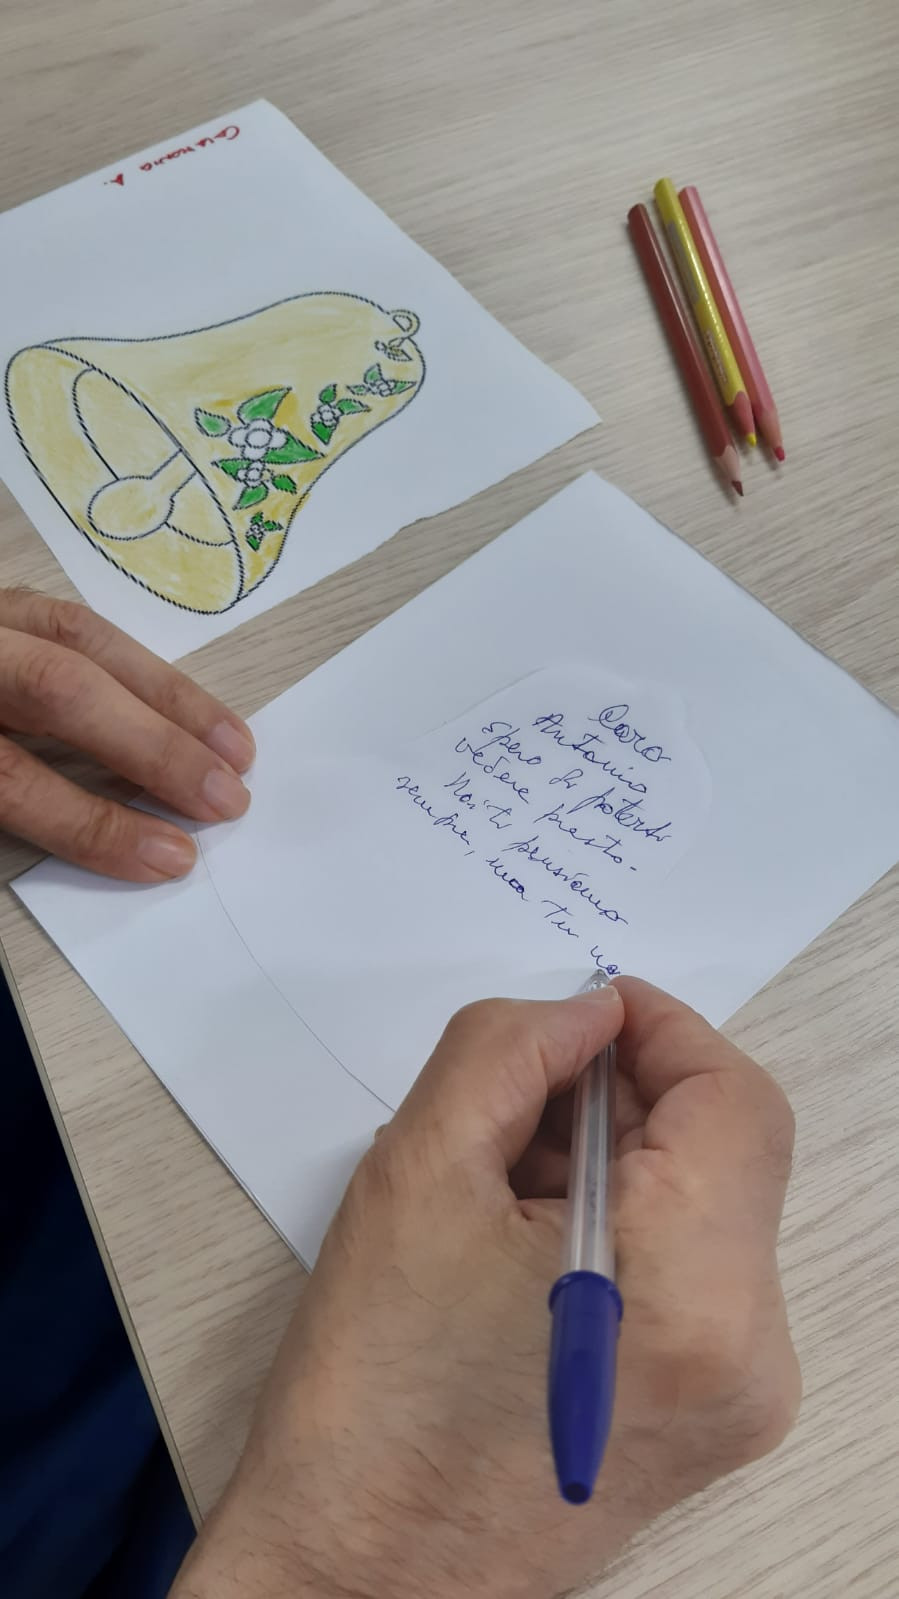 Caro
Antonio
spero di poterti
vedere presto.
Noi ti pensiamo
sempre, ma tu no